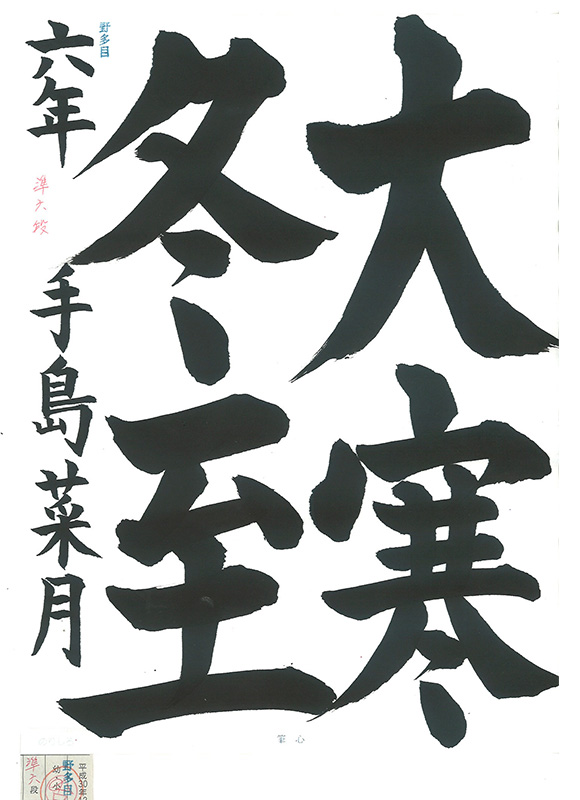 大寒
冬至
野多目
六年
準六段
手島菜月
心筆
平成30年
野多目
準六段